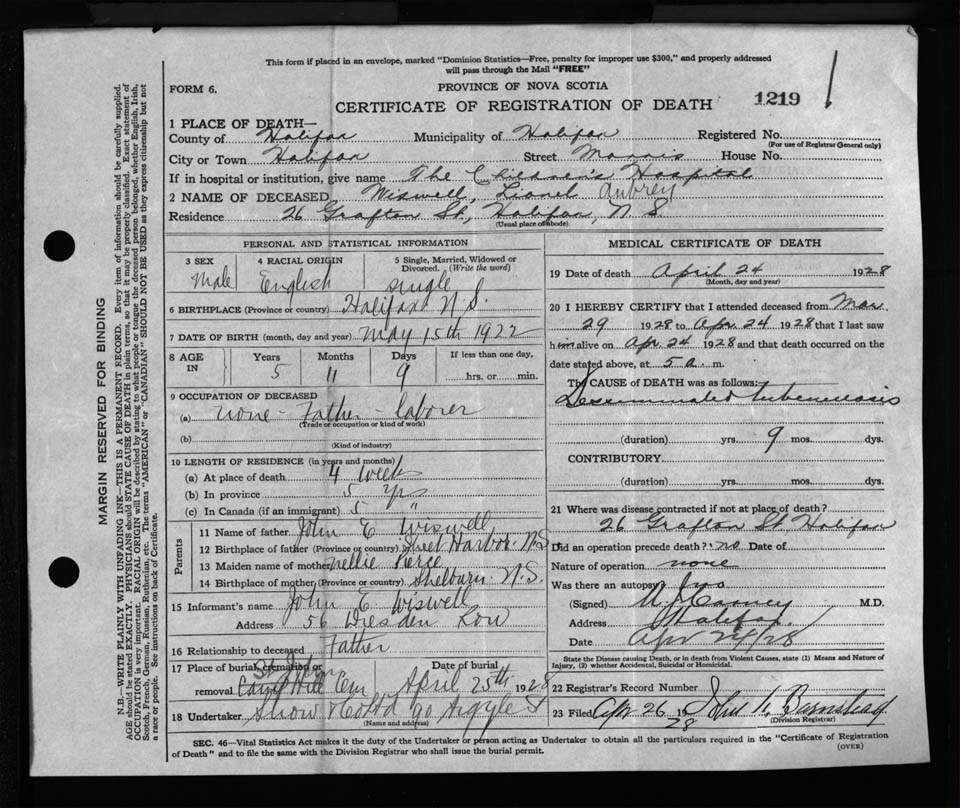 This form if placed in an envelope, marked "Dominion Statistics—Free, penalty for improper use $300," and properly addressed
will pass through the Mail "FREE"
FORM 6.
PROVINCE OF NOVA SCOTIA
CERTIFICATE OF REGISTRATION OF DEATH 1219
1 PLACE OF DEATH—
County of Halifax Municipality of Halifax Registered No.
(For use of Registrar General only)
City or Town Halifax Street Morris House No.
If in hospital or institution, give name The Children's Hospital
2 NAME OF DECEASED Wiswell, Lionel Aubrey
Residence 26 Grafton St, Halifax, N. S
(Usual place of abode)
PERSONAL AND STATISTICAL INFORMATION
3 SEX 4 RACIAL ORIGIN 5 Single, Married, Widowed or
Divorced. (Write the word)
Male English single
6 BIRTHPLACE (Province or country) Halifax N.S.
7 DATE OF BIRTH (month, day and year) May 15th 1922
8 AGE IN Years Months Days If less than one day,
5 11 9 hrs. or min.
9 OCCUPATION OF DECEASED
(a) none - Father - laborer
(Trade or occupation or kind of work)
(b)
(Kind of industry)
10 LENGTH OF RESIDENCE (in years and months)
(a) At place of death 4 weeks
(b) In province 5 yrs
(c) In Canada (if an immigrant) 5 "
Parents
11 Name of father John E Wiswell
12 Birthplace of father (Province or country) Sheet Harbor N.S
13 Maiden name of mother Nellie Pierce
14 Birthplace of mother (Province or country) Shelburn N.S.
15 Informant's name John E Wiswell
Address 56 Dresden Row
16 Relationship to deceased Father
17 Place of burial, cremation or Date of burial
St John
removal. Camp Hill Cem April 25th 1928
18 Undertaker Snow & Co Ltd 90 Argyle S
(Name and address)
MEDICAL CERTIFICATE OF DEATH
19 Date of death April 24 1928
(Month, day and year)
20 I HEREBY CERTIFY that I attended deceased from Mar.
29 1928 to Apr. 24 1928 that I last saw
him alive on Apr. 24 1928 and that death occurred on the
date stated above, at 5 a. m.
The CAUSE OF DEATH was as follows:
Disseminated tuberculosis
(duration) yrs. 9 mos. dys.
CONTRIBUTORY
(duration) yrs. mos. dys.
21 Where was disease contracted if not at place of death?
26 Grafton St, Halifax
Did an operation precede death? no Date of
Nature of operation none
Was there an autopsy? no
(Signed) M.D.
Address Halifax
Date Apr 24/28
State the Disease causing Death, or in death from Violent Causes, state (1) Means and Nature of
Injury, (2) whether Accidental, Suicidal or Homicidal.
22 Registrar's Record Number
23 Filed Apr 26 1928 John
(Division Registrar)
SEC. 46—Vital Statistics Act makes it the duty of the Undertaker or person acting as Undertaker to obtain all the particulars required in the "Certificate of Registration
of Death" and to file the same with the Division Registrar who shall issue the burial permit.
(OVER)
MARGIN RESERVED FOR BINDING
N.B.—WRITE PLAINLY WITH UNFADING INK—THIS IS A PERMANENT RECORD. Every item of information should be carefully supplied.
AGE should be stated EXACTLY. PHYSICIANS should STATE CAUSE OF DEATH in plain terms, so that it may be properly classified. Exact statement of
OCCUPATION is very important. RACIAL ORIGIN will be described by stating to what people or tongue the deceased person belonged, whether English, Irish,
Scotch, French, German, Russian, Ruthenian, etc. The terms "AMERICAN" or "CANADIAN" SHOULD NOT BE USED as they express citizenship but not
a race or people. See instructions on back of Certificate.